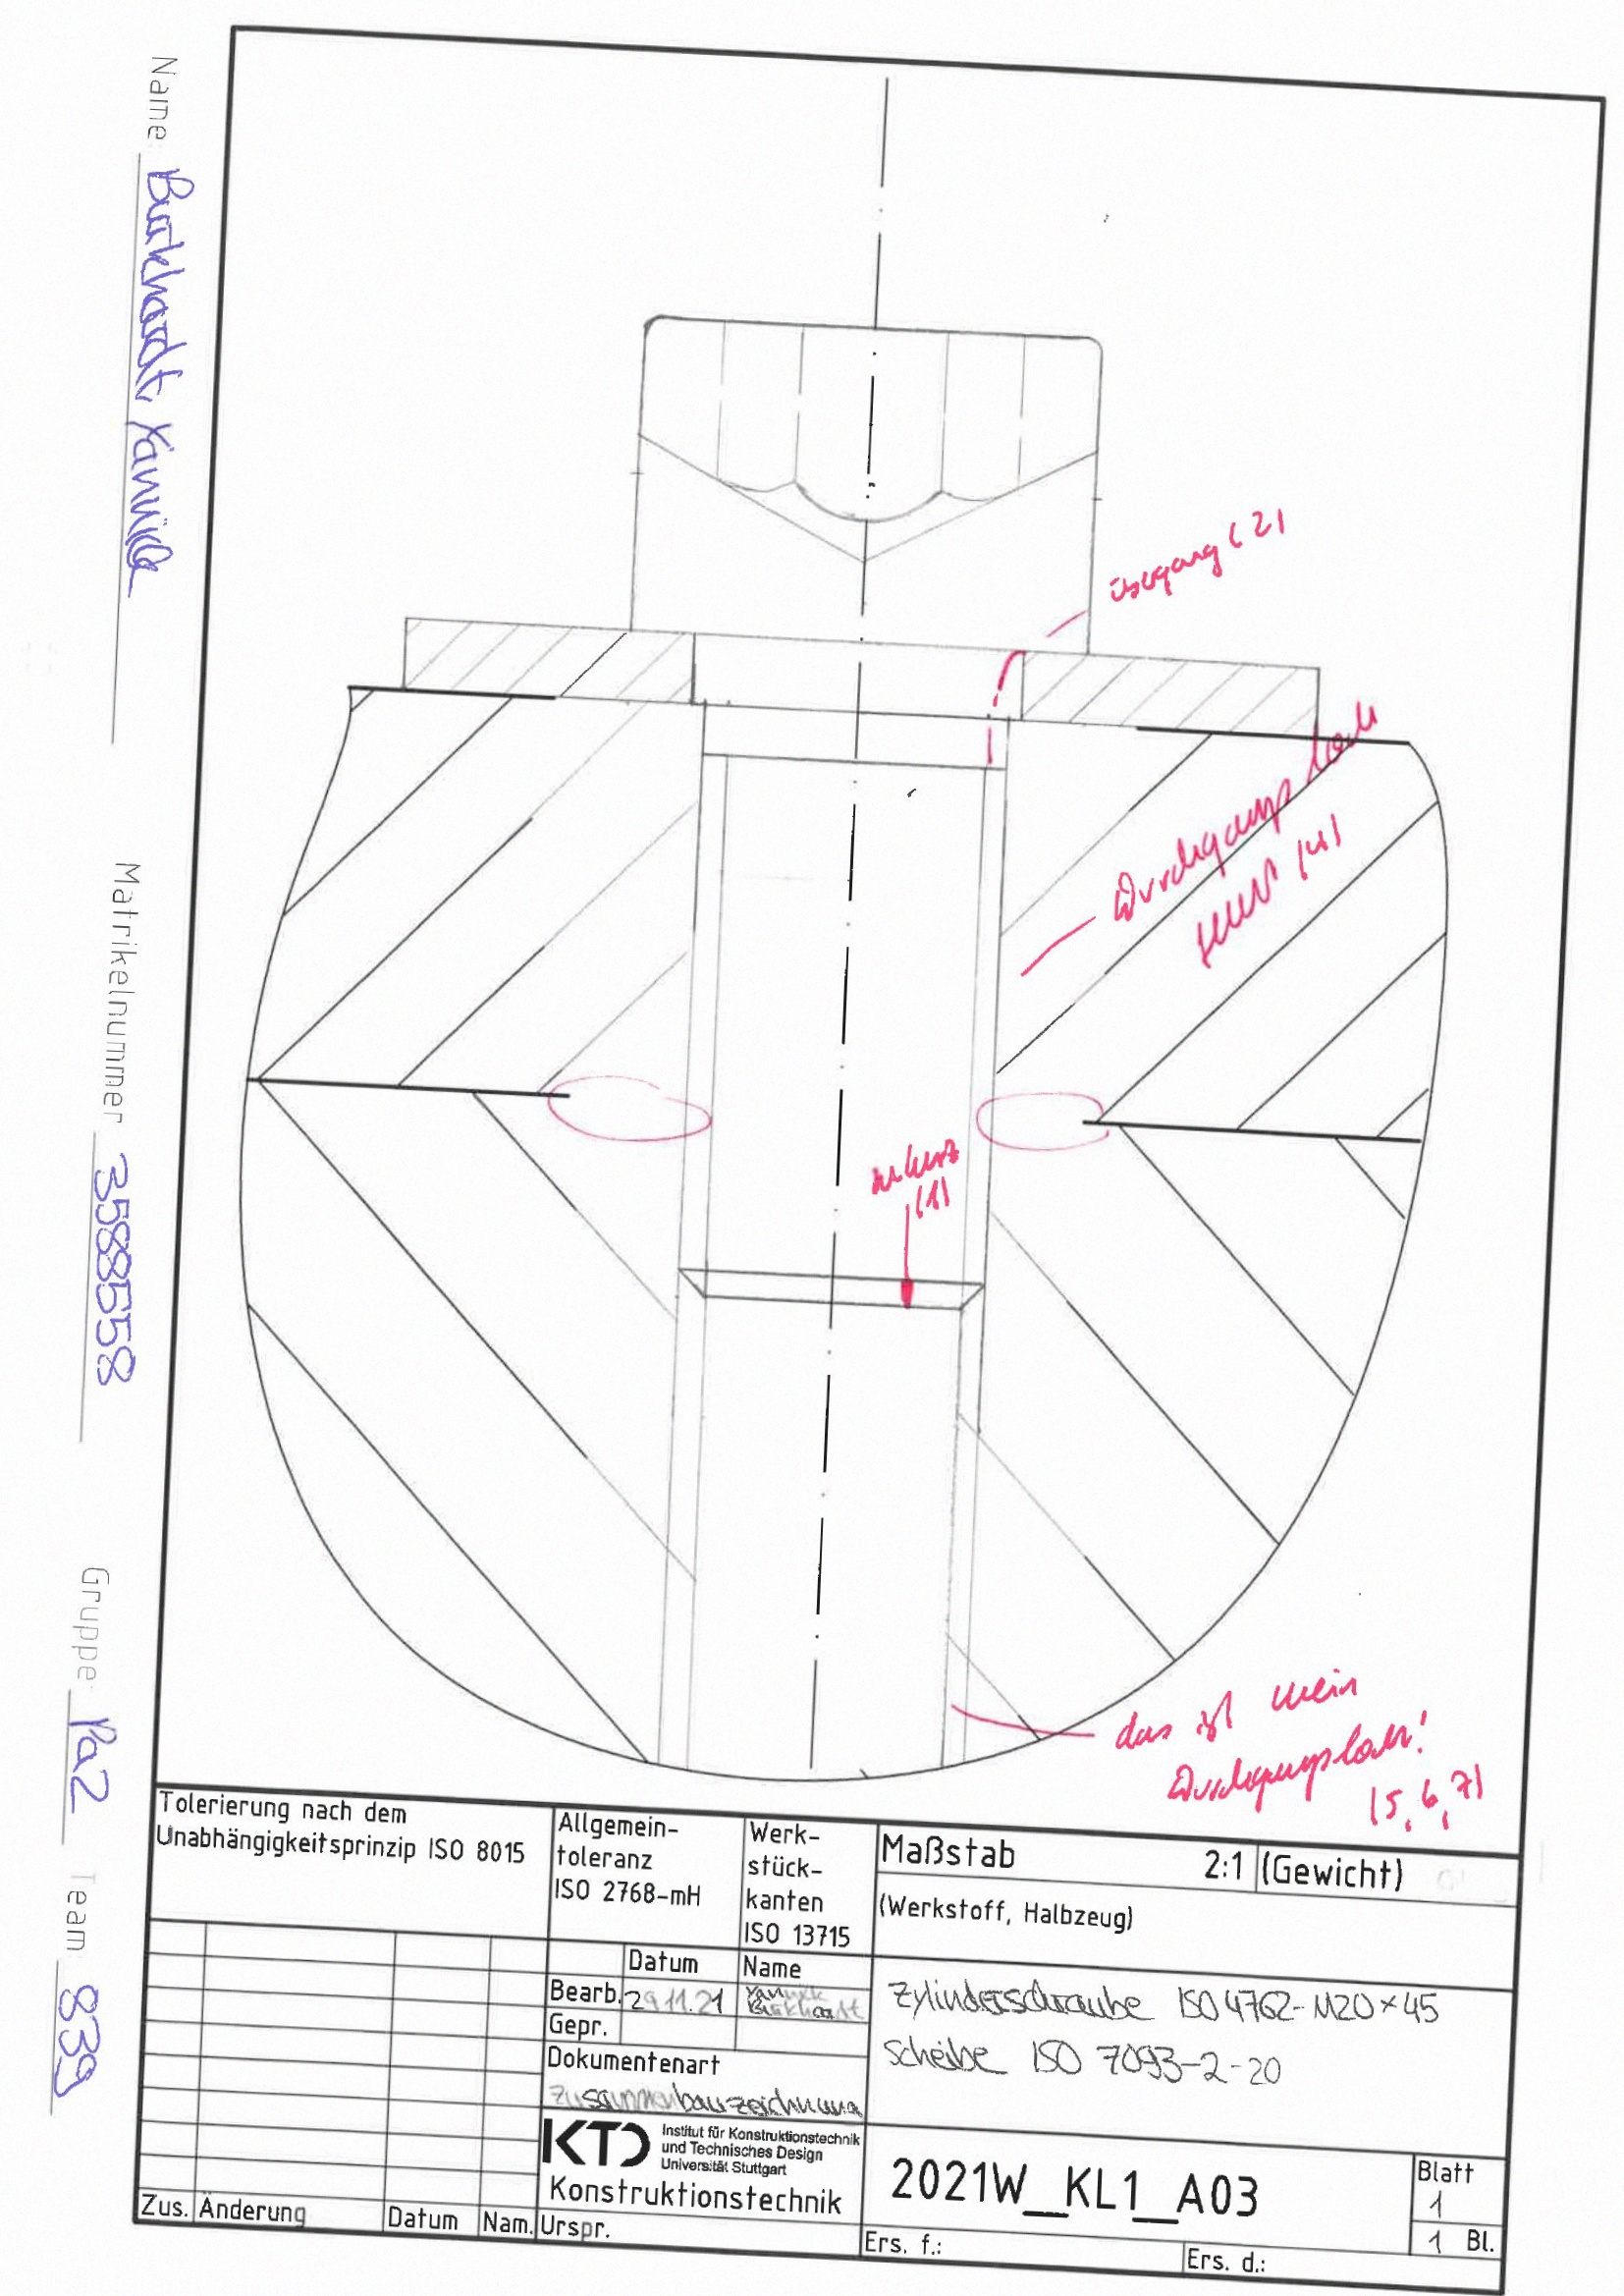 Name: Burkhardt, Yannick
Matrikelnummer 3588558
Gruppe: Pa2
Team: 839
übergang (2)
Durchgangsloch
(4)
zu kurz
(1)
das ist kein
Durchgangsloch!
(5, 6, 7)
Tolerierung nach dem
Unabhängigkeitsprinzip ISO 8015
Allgemein-
toleranz
ISO 2768-mH
Werk-
stück-
kanten
ISO 13715
Maßstab 2:1 (Gewicht)
(Werkstoff, Halbzeug)
Datum Name
Bearb. 29.11.21 Yannick
Burkhardt
Gepr.
Dokumentenart
Zusammenbauzeichnung
Zylinderschraube ISO 4762-M20×45
Scheibe ISO 7093-2-20
KTD
Institut für Konstruktionstechnik
und Technisches Design
Universität Stuttgart
Konstruktionstechnik
2021W_KL1_A03
Blatt
1
1 Bl.
Zus. Änderung Datum Nam. Urspr.
Ers. f.: Ers. d.: